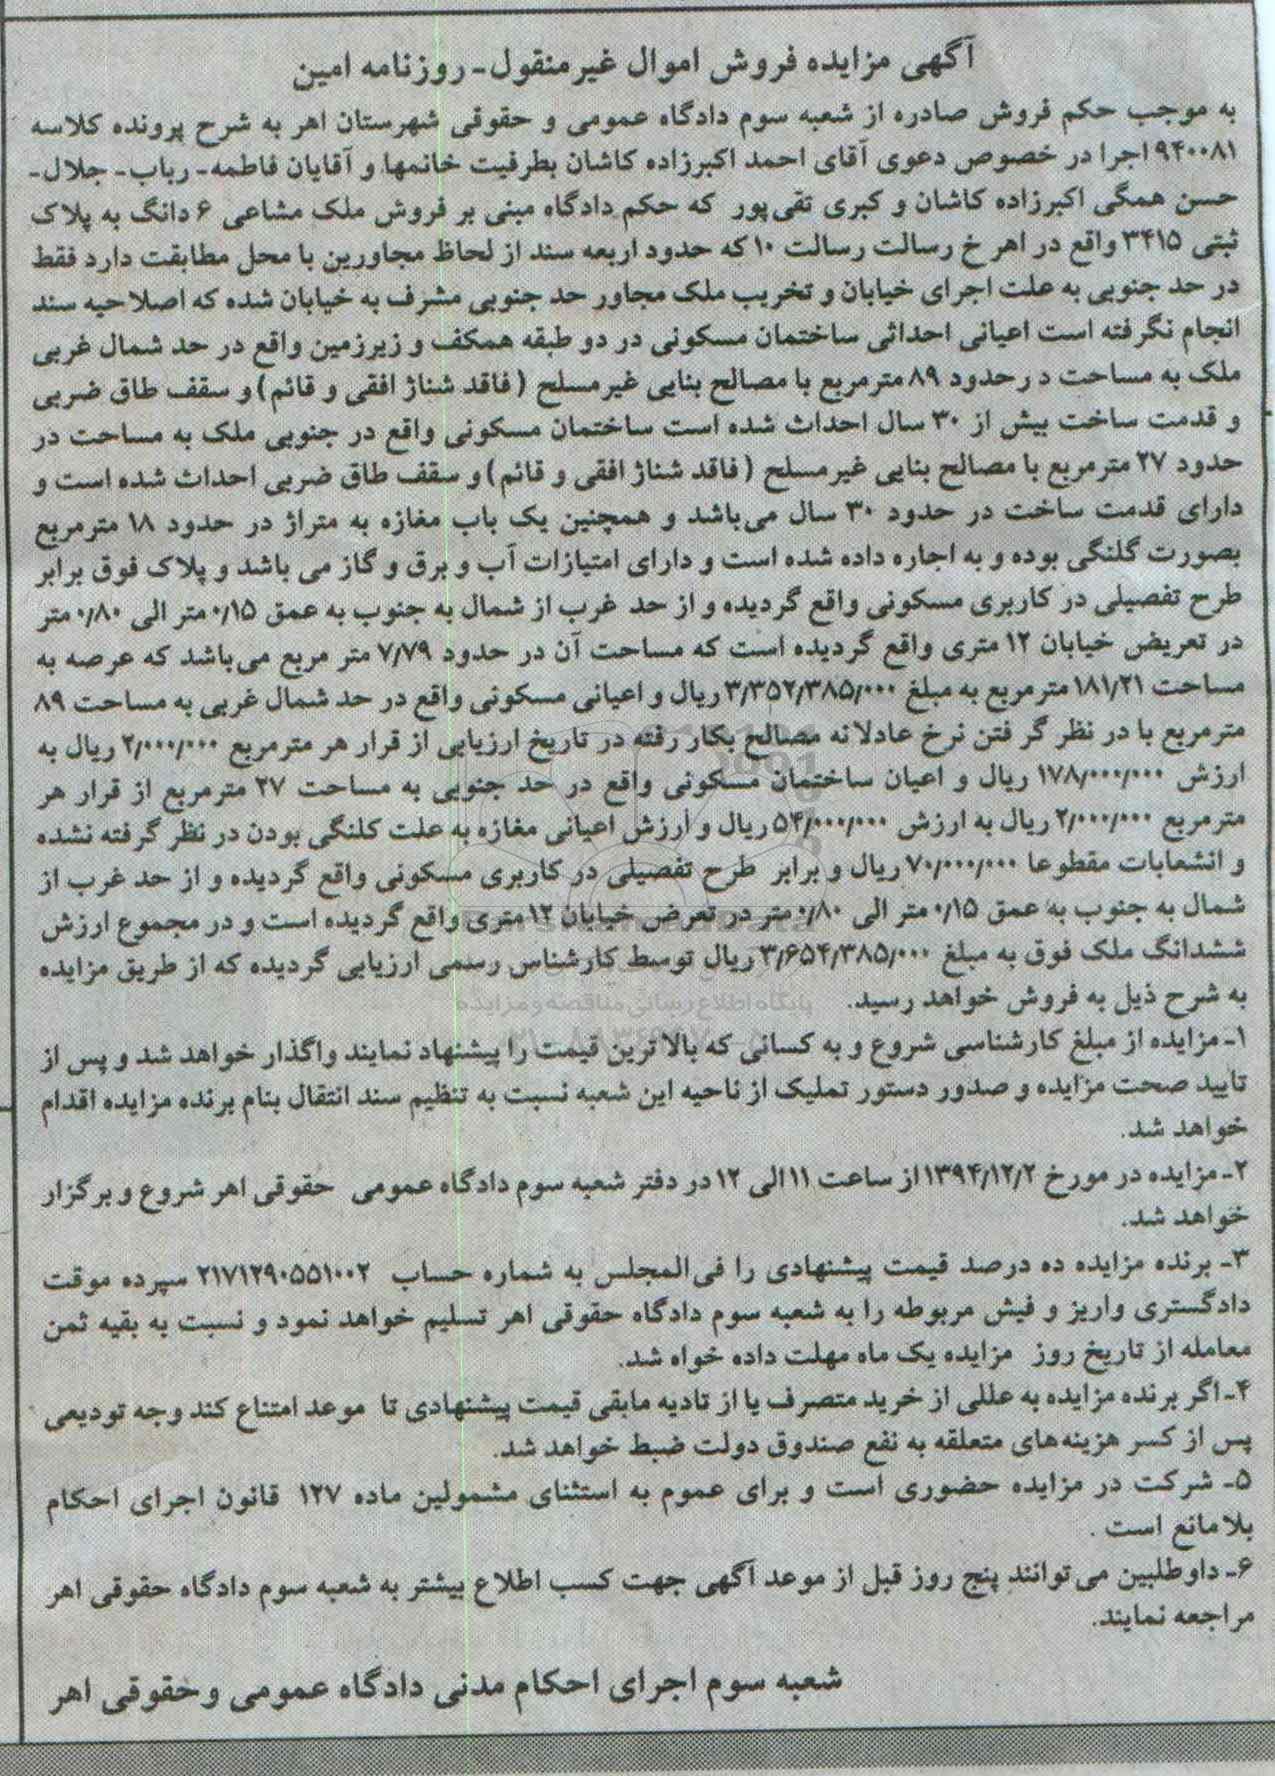 آگهی مزایده فروش اموال غیرمنقول- روزنامه امین
به موجب حکم فروش صادره از شعبه سوم دادگاه عمومی و حقوقی شهرستان اهر به شرح پرونده کلاسه
۹۴۰۰۸۱ اجرا در خصوص دعوی آقای احمد اکبرزاده کاشان بطرفیت خانمها و آقایان فاطمه- رباب- جلال-
حسن همگی اکبرزاده کاشان و کبری تقی‌پور که حکم دادگاه مبنی بر فروش ملک مشاعی ۶ دانگ به پلاک
ثبتی ۳۴۱۵ واقع در اهر خ رسالت رسالت ۱۰ که حدود اربعه سند از لحاظ مجاورین با محل مطابقت دارد فقط
در حد جنوبی به علت اجرای خیابان و تخریب ملک مجاور حد جنوبی مشرف به خیابان شده که اصلاحیه سند
انجام نگرفته است اعیانی احداثی ساختمان مسکونی در دو طبقه همکف و زیرزمین واقع در حد شمال غربی
ملک به مساحت د رحدود ۸۹ مترمربع با مصالح بنایی غیرمسلح (فاقد شناژ افقی و قائم) و سقف طاق ضربی
و قدمت ساخت بیش از ۳۰ سال احداث شده است ساختمان مسکونی واقع در جنوبی ملک به مساحت در
حدود ۲۷ مترمربع با مصالح بنایی غیرمسلح (فاقد شناژ افقی و قائم) و سقف طاق ضربی احداث شده است و
دارای قدمت ساخت در حدود ۳۰ سال می‌باشد و همچنین یک باب مغازه به متراژ در حدود ۱۸ مترمربع
بصورت گلنگی بوده و به اجاره داده شده است و دارای امتیازات آب و برق و گاز می باشد و پلاک فوق برابر
طرح تفصیلی در کاربری مسکونی واقع گردیده و از حد غرب از شمال به جنوب به عمق ۰/۱۵ متر الی ۰/۸۰ متر
در تعریض خیابان ۱۲ متری واقع گردیده است که مساحت آن در حدود ۷/۷۹ متر مربع می‌باشد که عرصه به
مساحت ۱۸۱/۲۱ مترمربع به مبلغ ۳/۳۵۲/۳۸۵/۰۰۰ ریال و اعیانی مسکونی واقع در حد شمال غربی به مساحت ۸۹
مترمربع با در نظر گر فتن نرخ عادلانه مصالح بکار رفته در تاریخ ارزیابی از قرار هر مترمربع ۲/۰۰۰/۰۰۰ ریال به
ارزش ۱۷۸/۰۰۰/۰۰۰ ریال و اعیان ساختمان مسکونی واقع در حد جنوبی به مساحت ۲۷ مترمربع از قرار هر
مترمربع ۲/۰۰۰/۰۰۰ ریال به ارزش ۵۴/۰۰۰/۰۰۰ ریال و ارزش اعیانی مغازه به علت کلنگی بودن در نظر گرفته نشده
و انشعابات مقطوعا ۷۰/۰۰۰/۰۰۰ ریال و برابر طرح تفصیلی در کاربری مسکونی واقع گردیده و از حد غرب از
شمال به جنوب به عمق ۰/۱۵ متر الی ۰/۸۰ متر در تعرض خیابان ۱۲ متری واقع گردیده است و در مجموع ارزش
ششدانگ ملک فوق به مبلغ ۳/۶۵۴/۳۸۵/۰۰۰ ریال توسط کارشناس رسمی ارزیابی گردیده که از طریق مزایده
به شرح ذیل به فروش خواهد رسید.
پایگاه اطلاع رسانی مناقصه و مزایده
۱- مزایده از مبلغ کارشناسی شروع و به کسانی که بالا ترین قیمت را پیشنهاد نمایند واگذار خواهد شد و پس از
تایید صحت مزایده و صدور دستور تملیک از ناحیه این شعبه نسبت به تنظیم سند انتقال بنام برنده مزایده اقدام
خواهد شد.
۲- مزایده در مورخ ۱۳۹۴/۱۲/۲ از ساعت ۱۱ الی ۱۲ در دفتر شعبه سوم دادگاه عمومی حقوقی اهر شروع و برگزار
خواهد شد.
۳- برنده مزایده ده درصد قیمت پیشنهادی را فی‌المجلس به شماره حساب ۲۱۷۱۲۹۰۵۵۱۰۰۲ سپرده موقت
دادگستری واریز و فیش مربوطه را به شعبه سوم دادگاه حقوقی اهر تسلیم خواهد نمود و نسبت به بقیه ثمن
معامله از تاریخ روز مزایده یک ماه مهلت داده خواه شد.
۴- اگر برنده مزایده به عللی از خرید متصرف یا از تادیه مابقی قیمت پیشنهادی تا موعد امتناع کند وجه تودیعی
پس از کسر هزینه‌های متعلقه به نفع صندوق دولت ضبط خواهد شد.
۵- شرکت در مزایده حضوری است و برای عموم به استثنای مشمولین ماده ۱۲۷ قانون اجرای احکام
بلامانع است .
۶- داوطلبین می‌توانند پنج روز قبل از موعد آگهی جهت کسب اطلاع بیشتر به شعبه سوم دادگاه حقوقی اهر
مراجعه نمایند.
شعبه سوم اجرای احکام مدنی دادگاه عمومی و حقوقی اهر